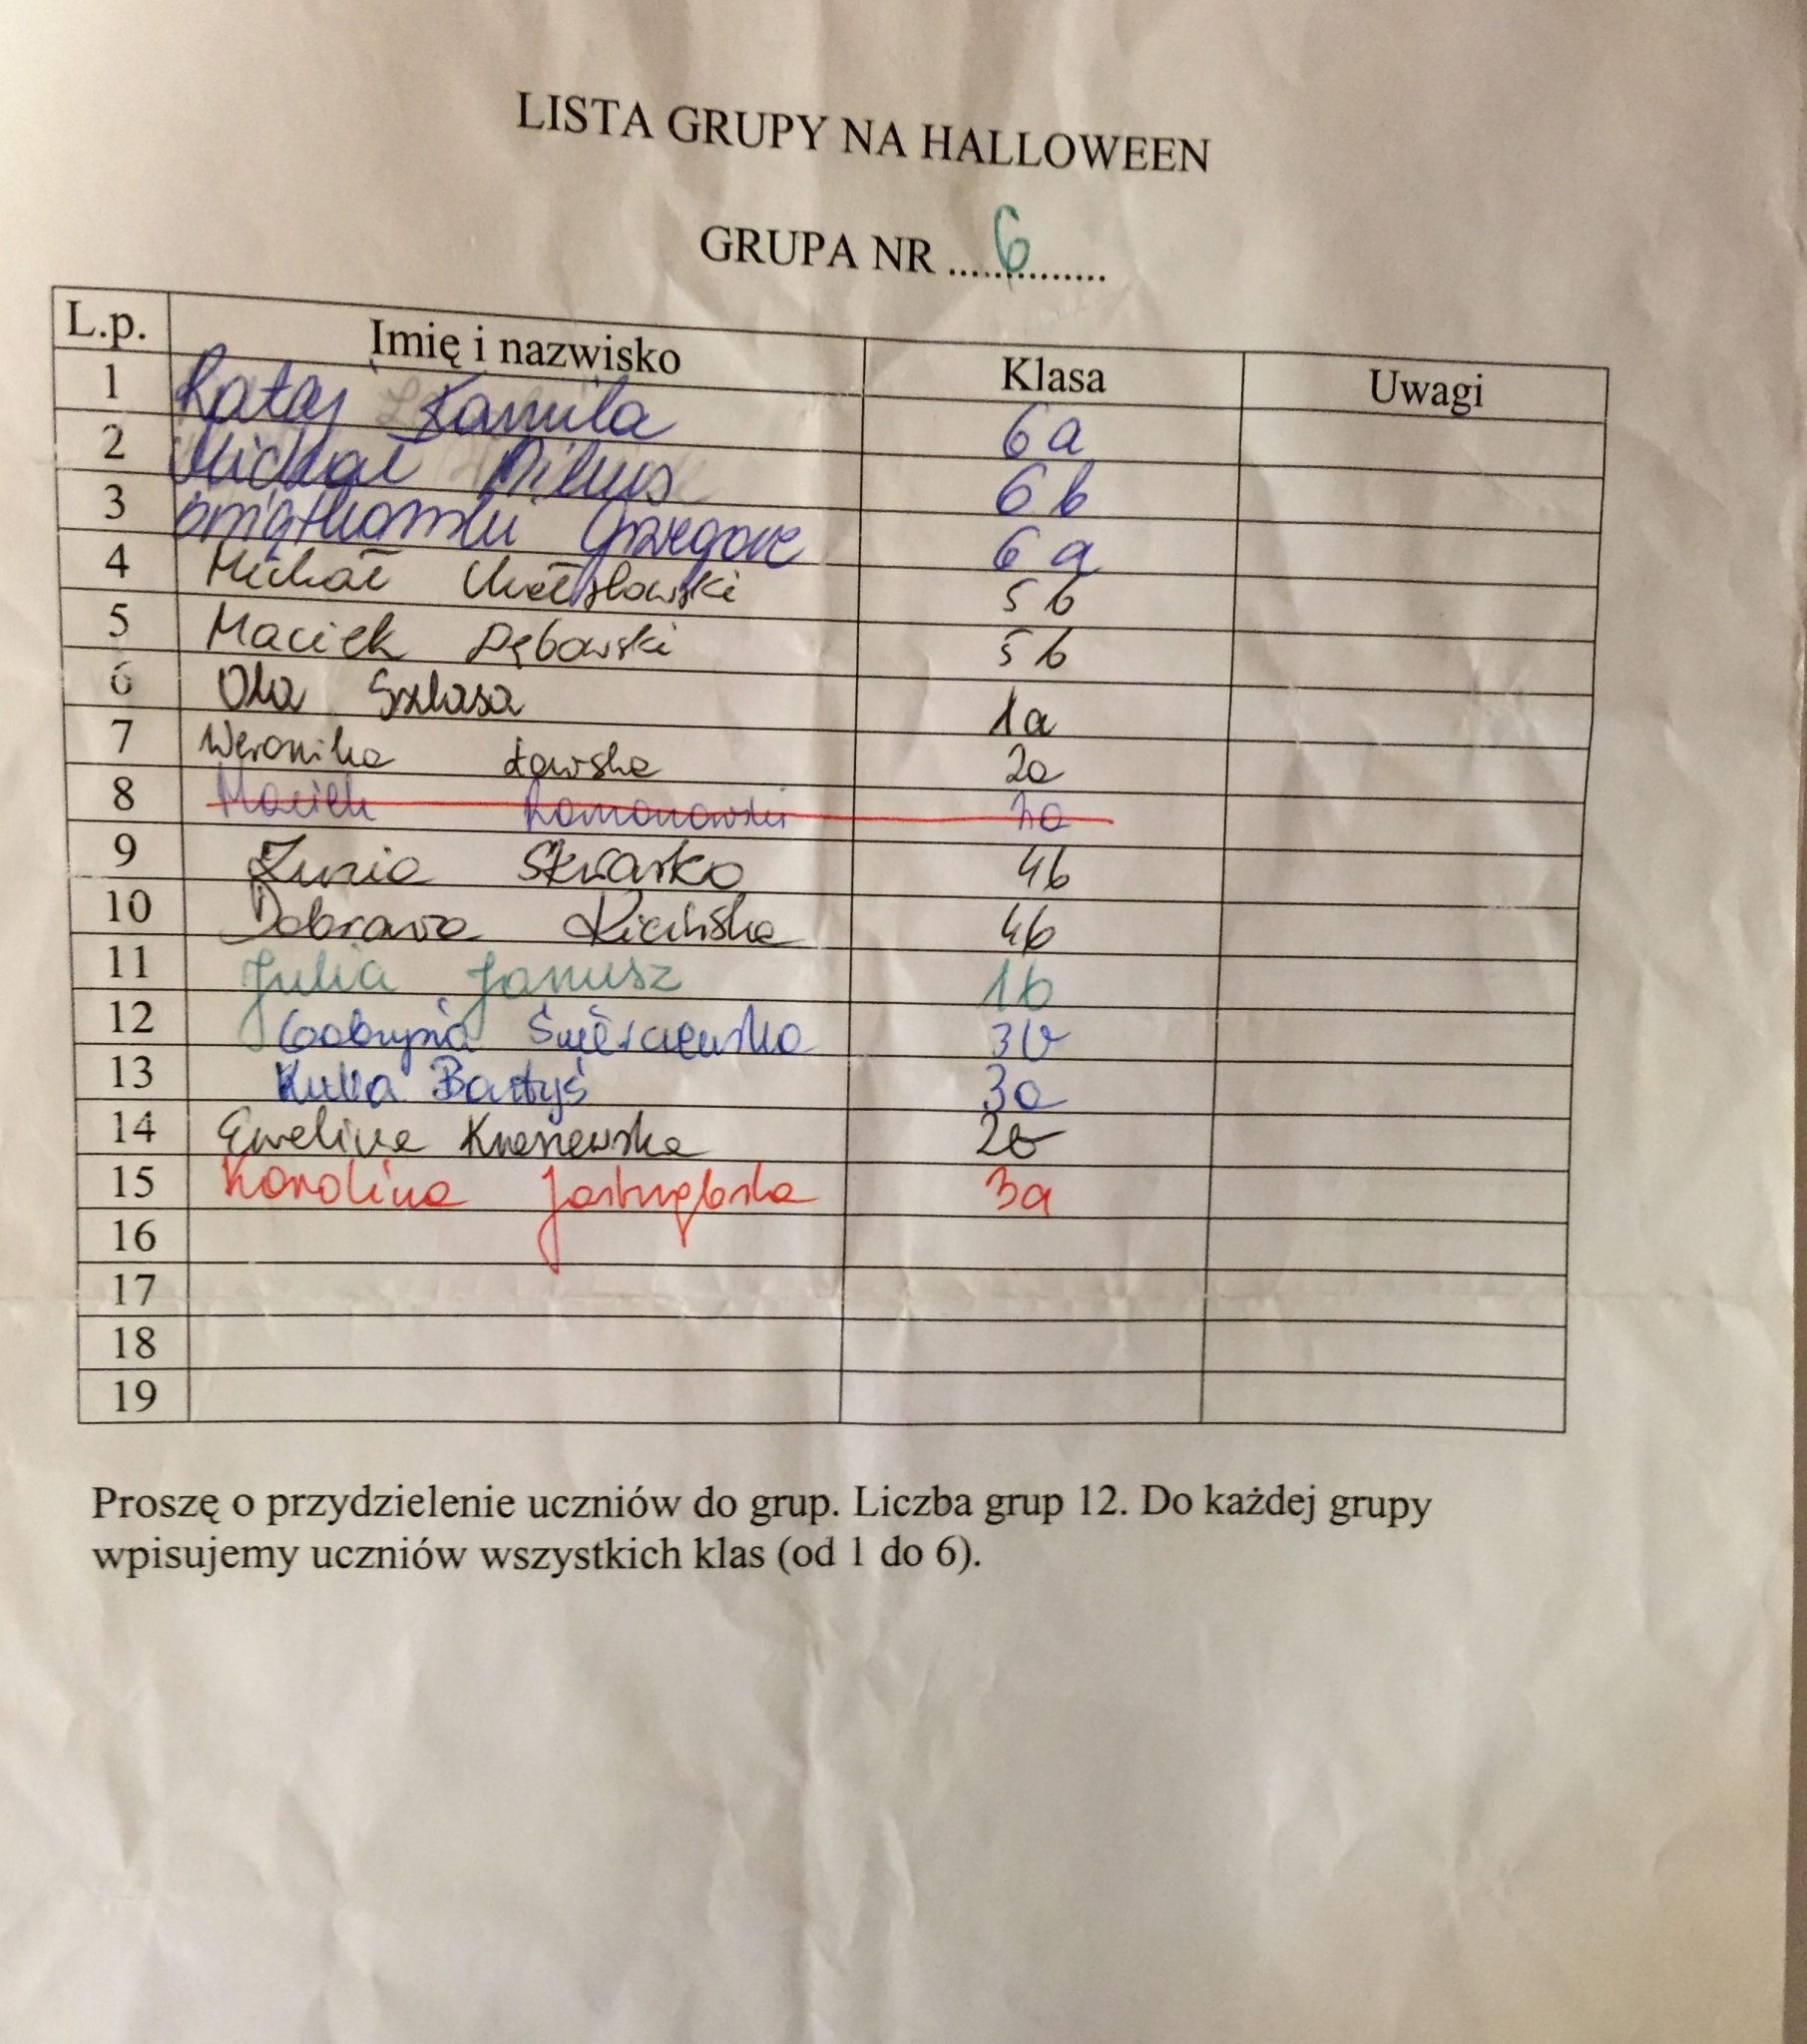 LISTA GRUPY NA HALLOWEEN
GRUPA NR ....6.........
L.p. Imię i nazwisko Klasa Uwagi
1 Rataj Kamila 6a
2 Michał 6b
3 Grzegorz 6a
4 Michał 5b
5 Maciek Dębowski 5b
6 Ola Szlasa 1a
7 Weronika Ławska 2a
8 Maciek Romanowski
9 Zunia Skwarko 4b
10 Dobrawa 4b
11 Julia Janusz 1b
12 Gabrysia Świerczewska 3b
13 Kuba Bartyś 3a
14 Ewelina 2b
15 Karolina Jastrzębska 3a
16
17
18
19
Proszę o przydzielenie uczniów do grup. Liczba grup 12. Do każdej grupy
wpisujemy uczniów wszystkich klas (od 1 do 6).